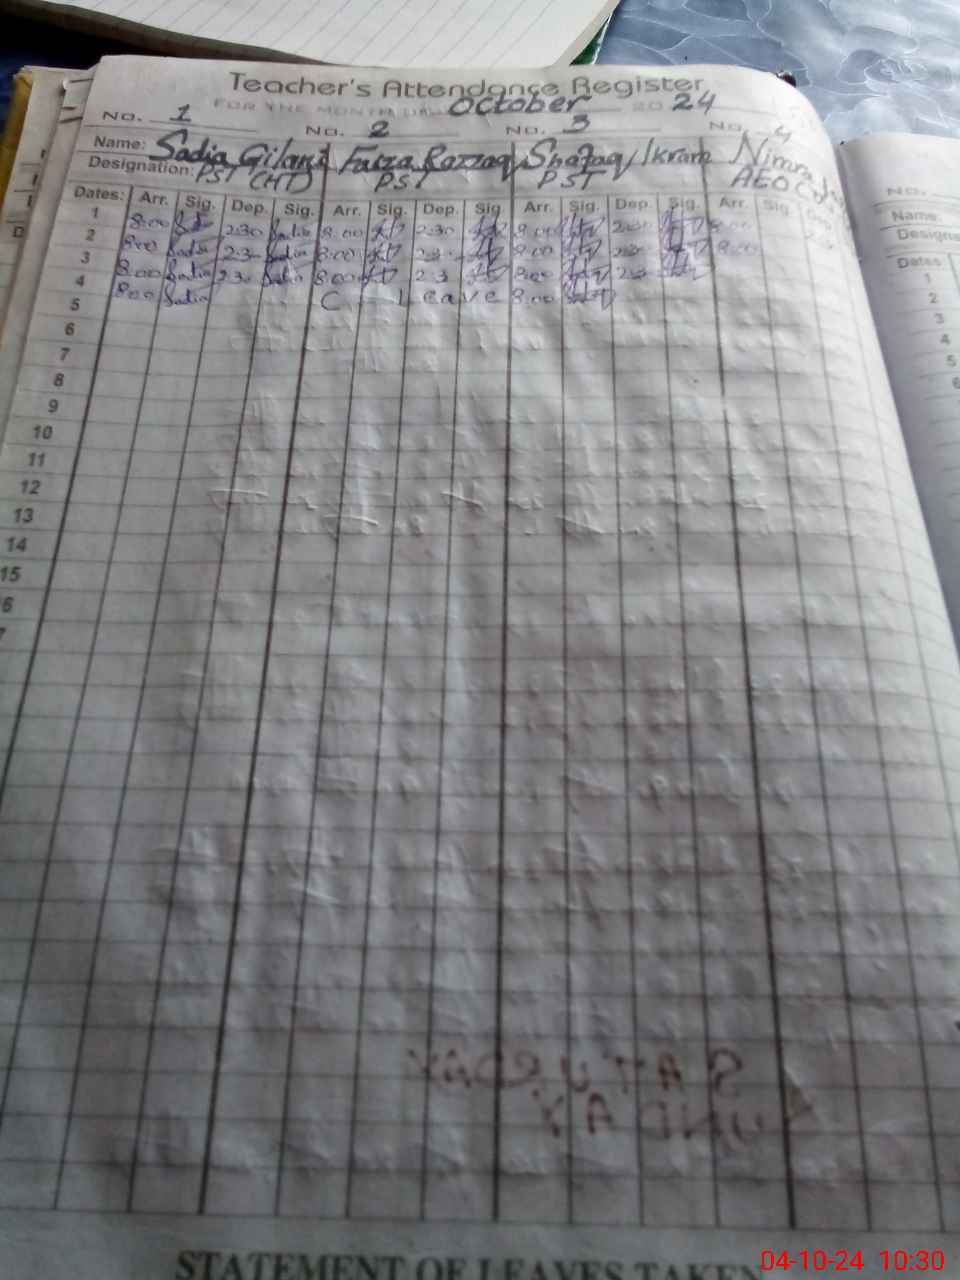 Teacher's Attendance Register
FOR THE MONTH October 20 24
No. 1 No. 2 No. 3 No. 4
Name: Sadia Gilani Faiza Razzaq Shafaq Ikram Nimra
Designation: PST (HT) PST PST AEO
Dates: Arr. Sig. Dep. Sig. Arr. Sig. Dep. Sig. Arr. Sig. Dep. Sig. Arr. Sig.
1 8:00 2:30 Sadia 8:00 2:30 8:00 2:30 8:00
2 8:00 Sadia 2:3 Sadia 8:00 2:3 8:00 2:3 8:00
3 8:00 Sadia 2:30 Sadia 8:00 2:3 8:00 2:3
4 8:00 Sadia C Leave 8:00
5
6
7
8
9
10
11
12
13
14
15
6
7
SATURDAY
SUNDAY
STATEMENT OF LEAVES TAKEN
No.
Name:
Designa
Dates:
1
2
3
4
5
6
04-10-24 10:30